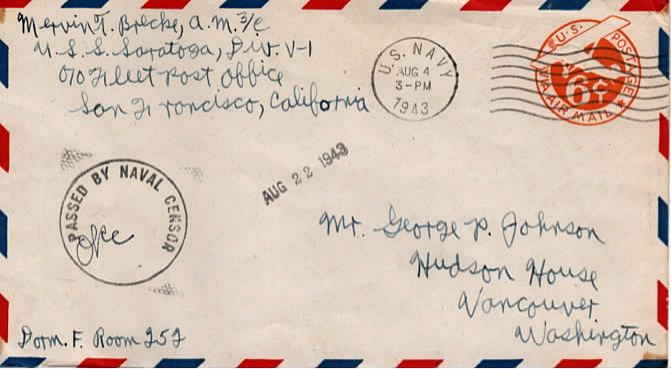 Mervin T. Brecke, A.M. 3/c
U.S.S. Saratoga, Div. V-1
c/o Fleet Post Office
San Francisco, California
U.S. NAVY
AUG 4
3-PM
1943
U.S. POSTAGE
6¢
VIA AIR MAIL
AUG 22 1943
PASSED BY NAVAL CENSOR
Mr. George P. Johnson
Hudson House
Vancouver,
Washington
Dorm. F. Room 252